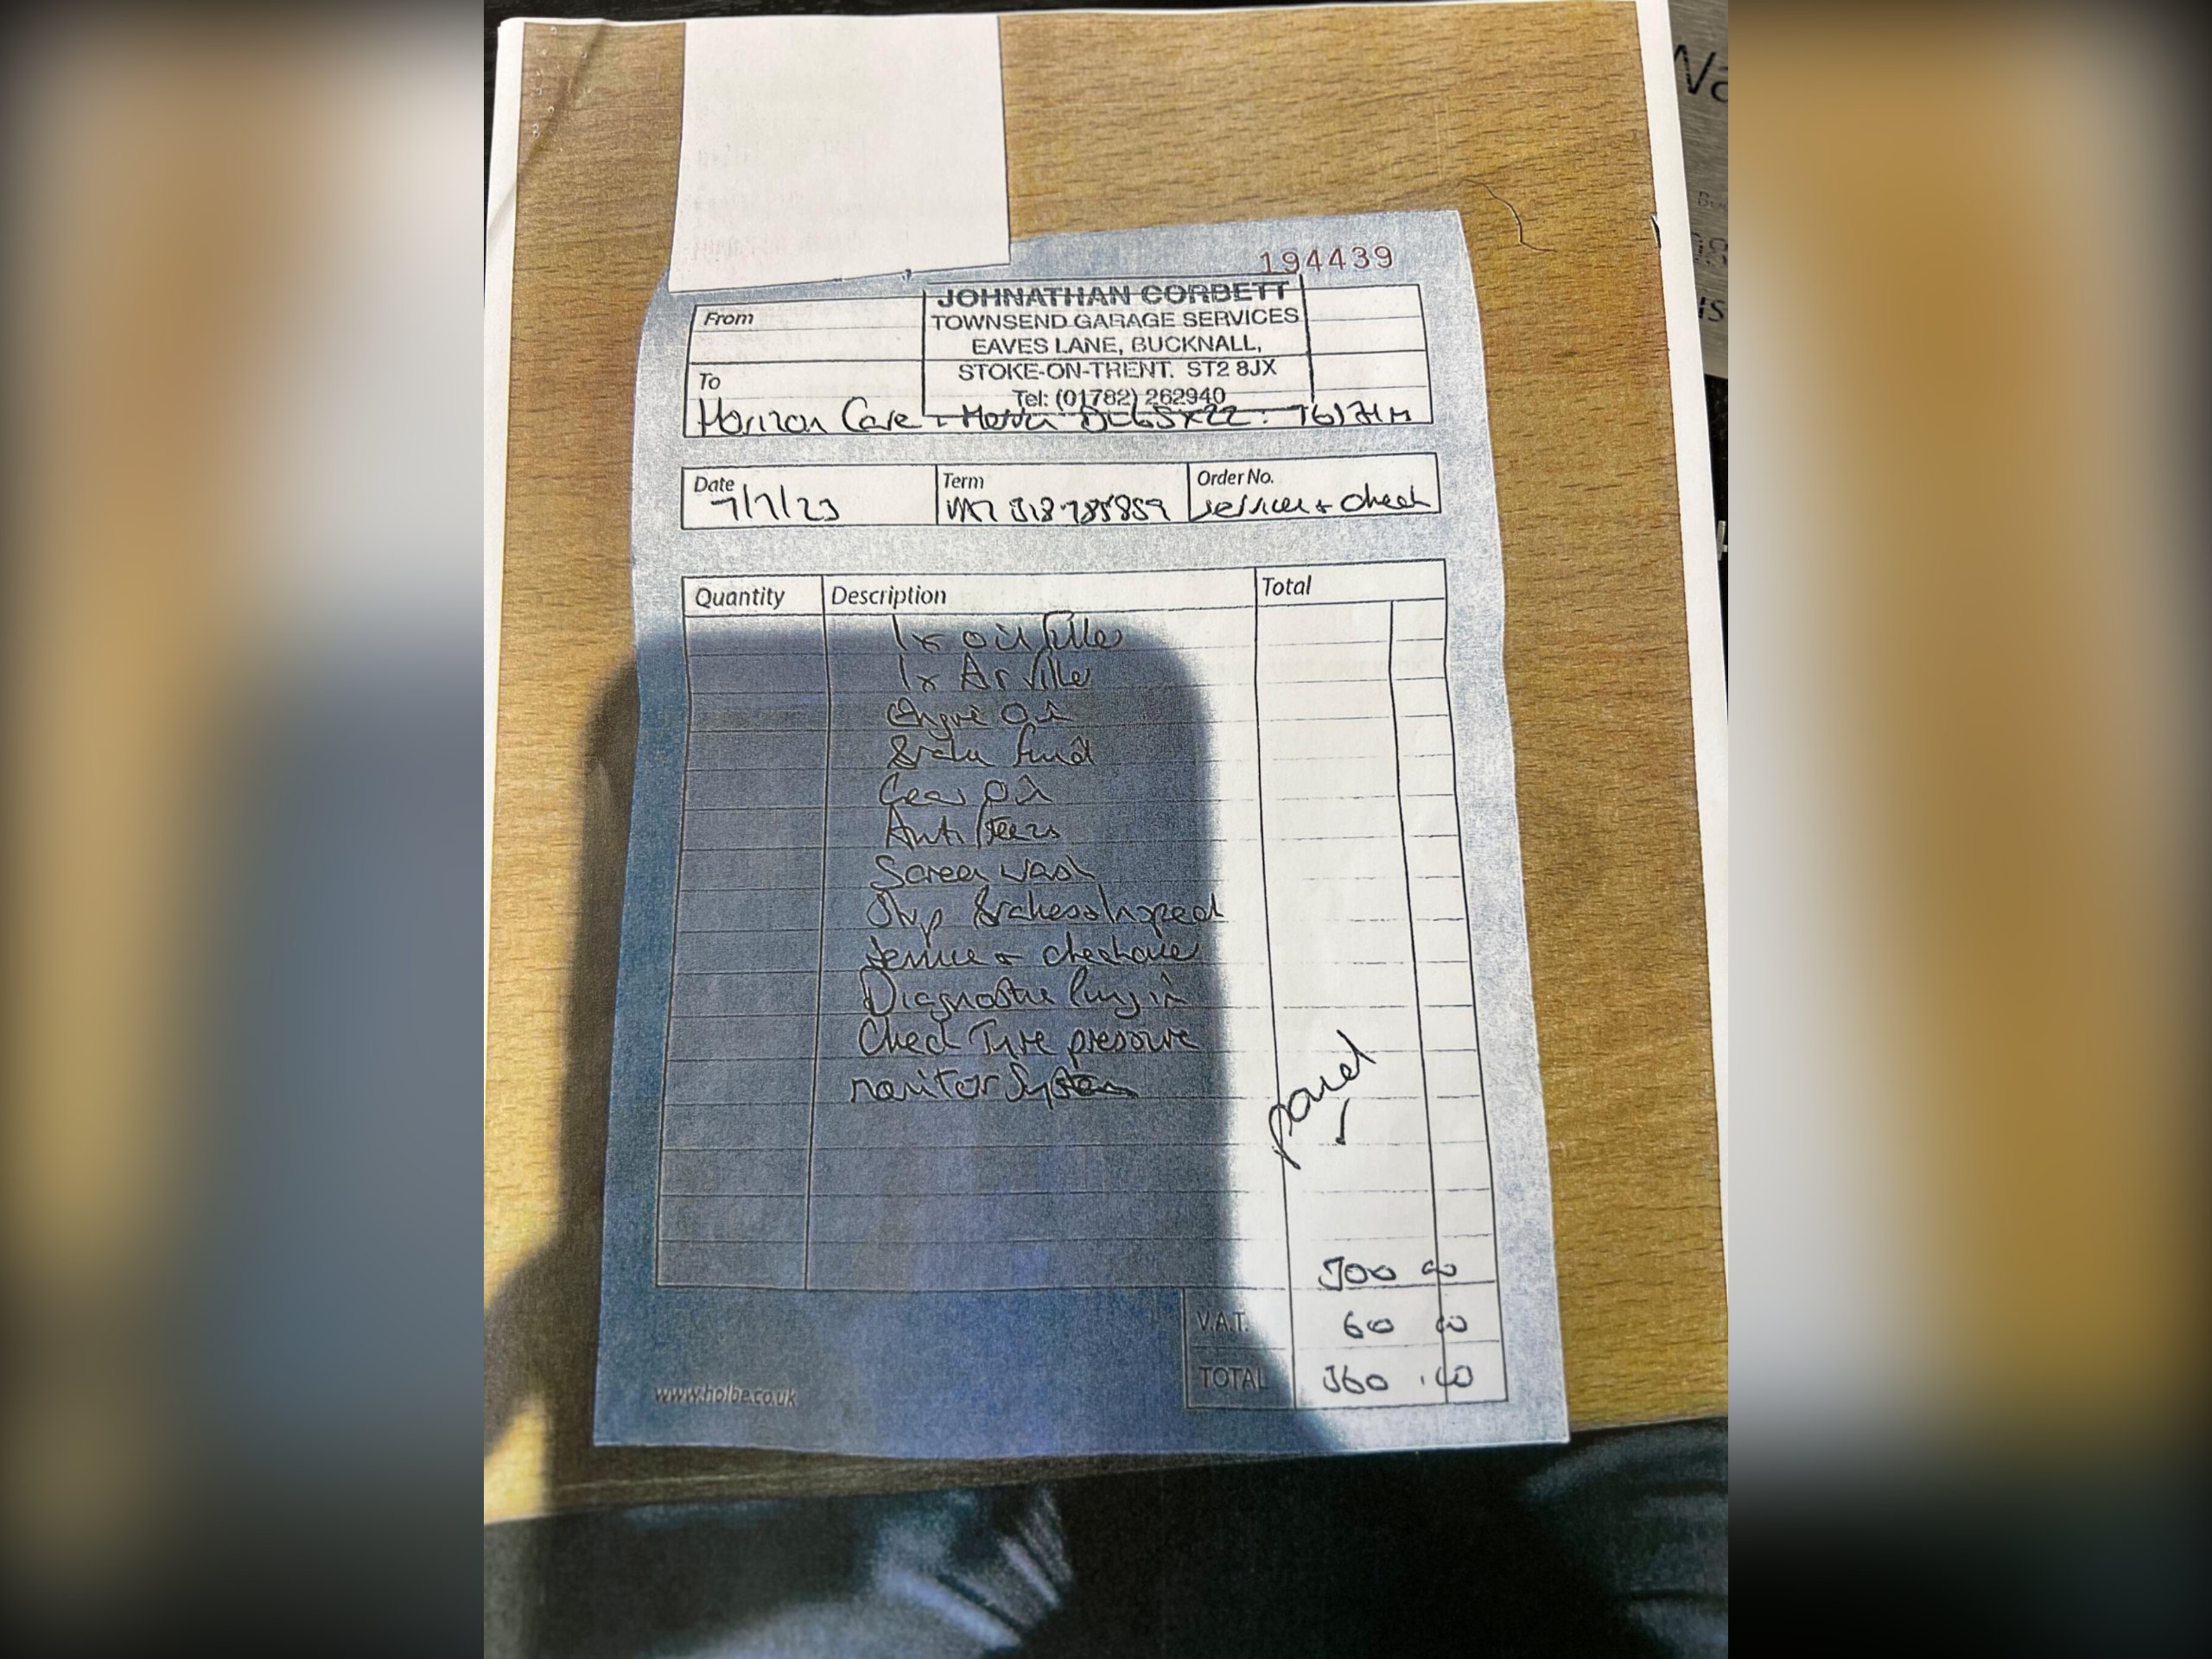 194439
From
JOHNATHAN CORBETT
TOWNSEND GARAGE SERVICES
EAVES LANE, BUCKNALL,
STOKE-ON-TRENT. ST2 8JX
Tel: (01782) 262940
To
Horizon Care
Date
Term
Order No.
7/7/23
318785859
service + check
Quantity
Description
Total
1x oil filter
1x Air filter
Engine Oil
Brake fluid
Gear Oil
Anti freeze
Screen wash
Strip Brakes + Inspect
Service + checkover
Diagnostic Plug in
Check Tyre pressure
monitor System
paid
300 00
V.A.T. 60 00
TOTAL 360.00
www.holbe.co.uk